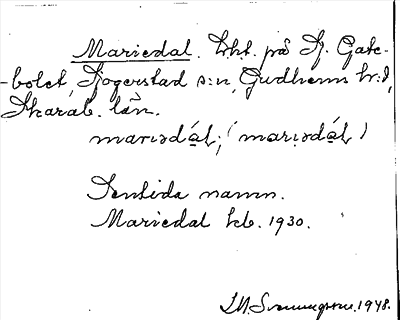 Mariedal. lht. på St. Gate-
-bolet, Segerstad s:n, Gudhems h:d,
Skarab. län.
marɩədɑ́l; (marɩədɑ́l)
Sentida namn.
Mariedal kb. 1930.
1948.